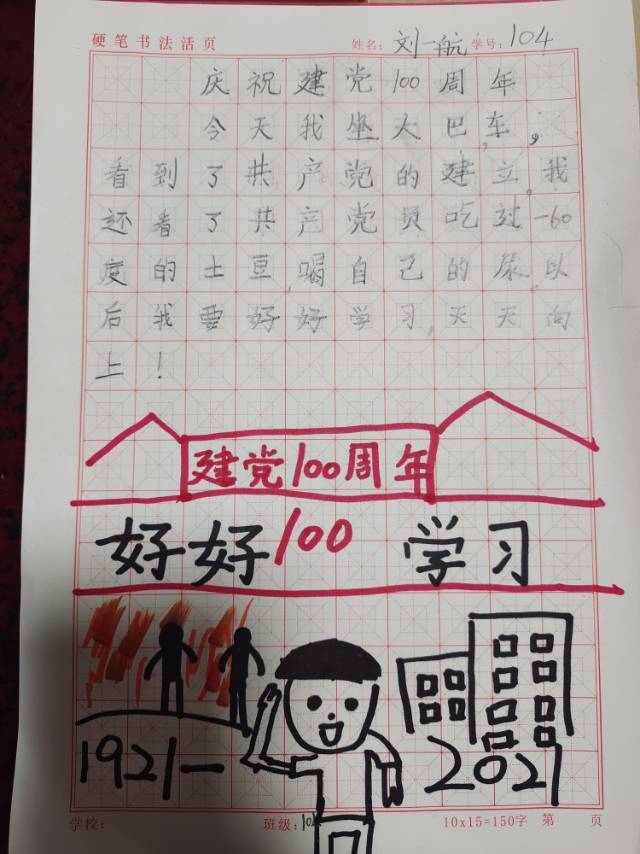 硬笔书法活页 姓名: 刘一航 学号: 104
庆祝建党100周年
今天我坐大巴车，
看到了共产党的建立。我
还看了共产党员吃过-60
度的土豆,喝自己的尿。以
后我要好好学习,天天向
上！
建党100周年
好好100 学习
1921一 2021
学校: 班级: 104 10x15=150字 第 页